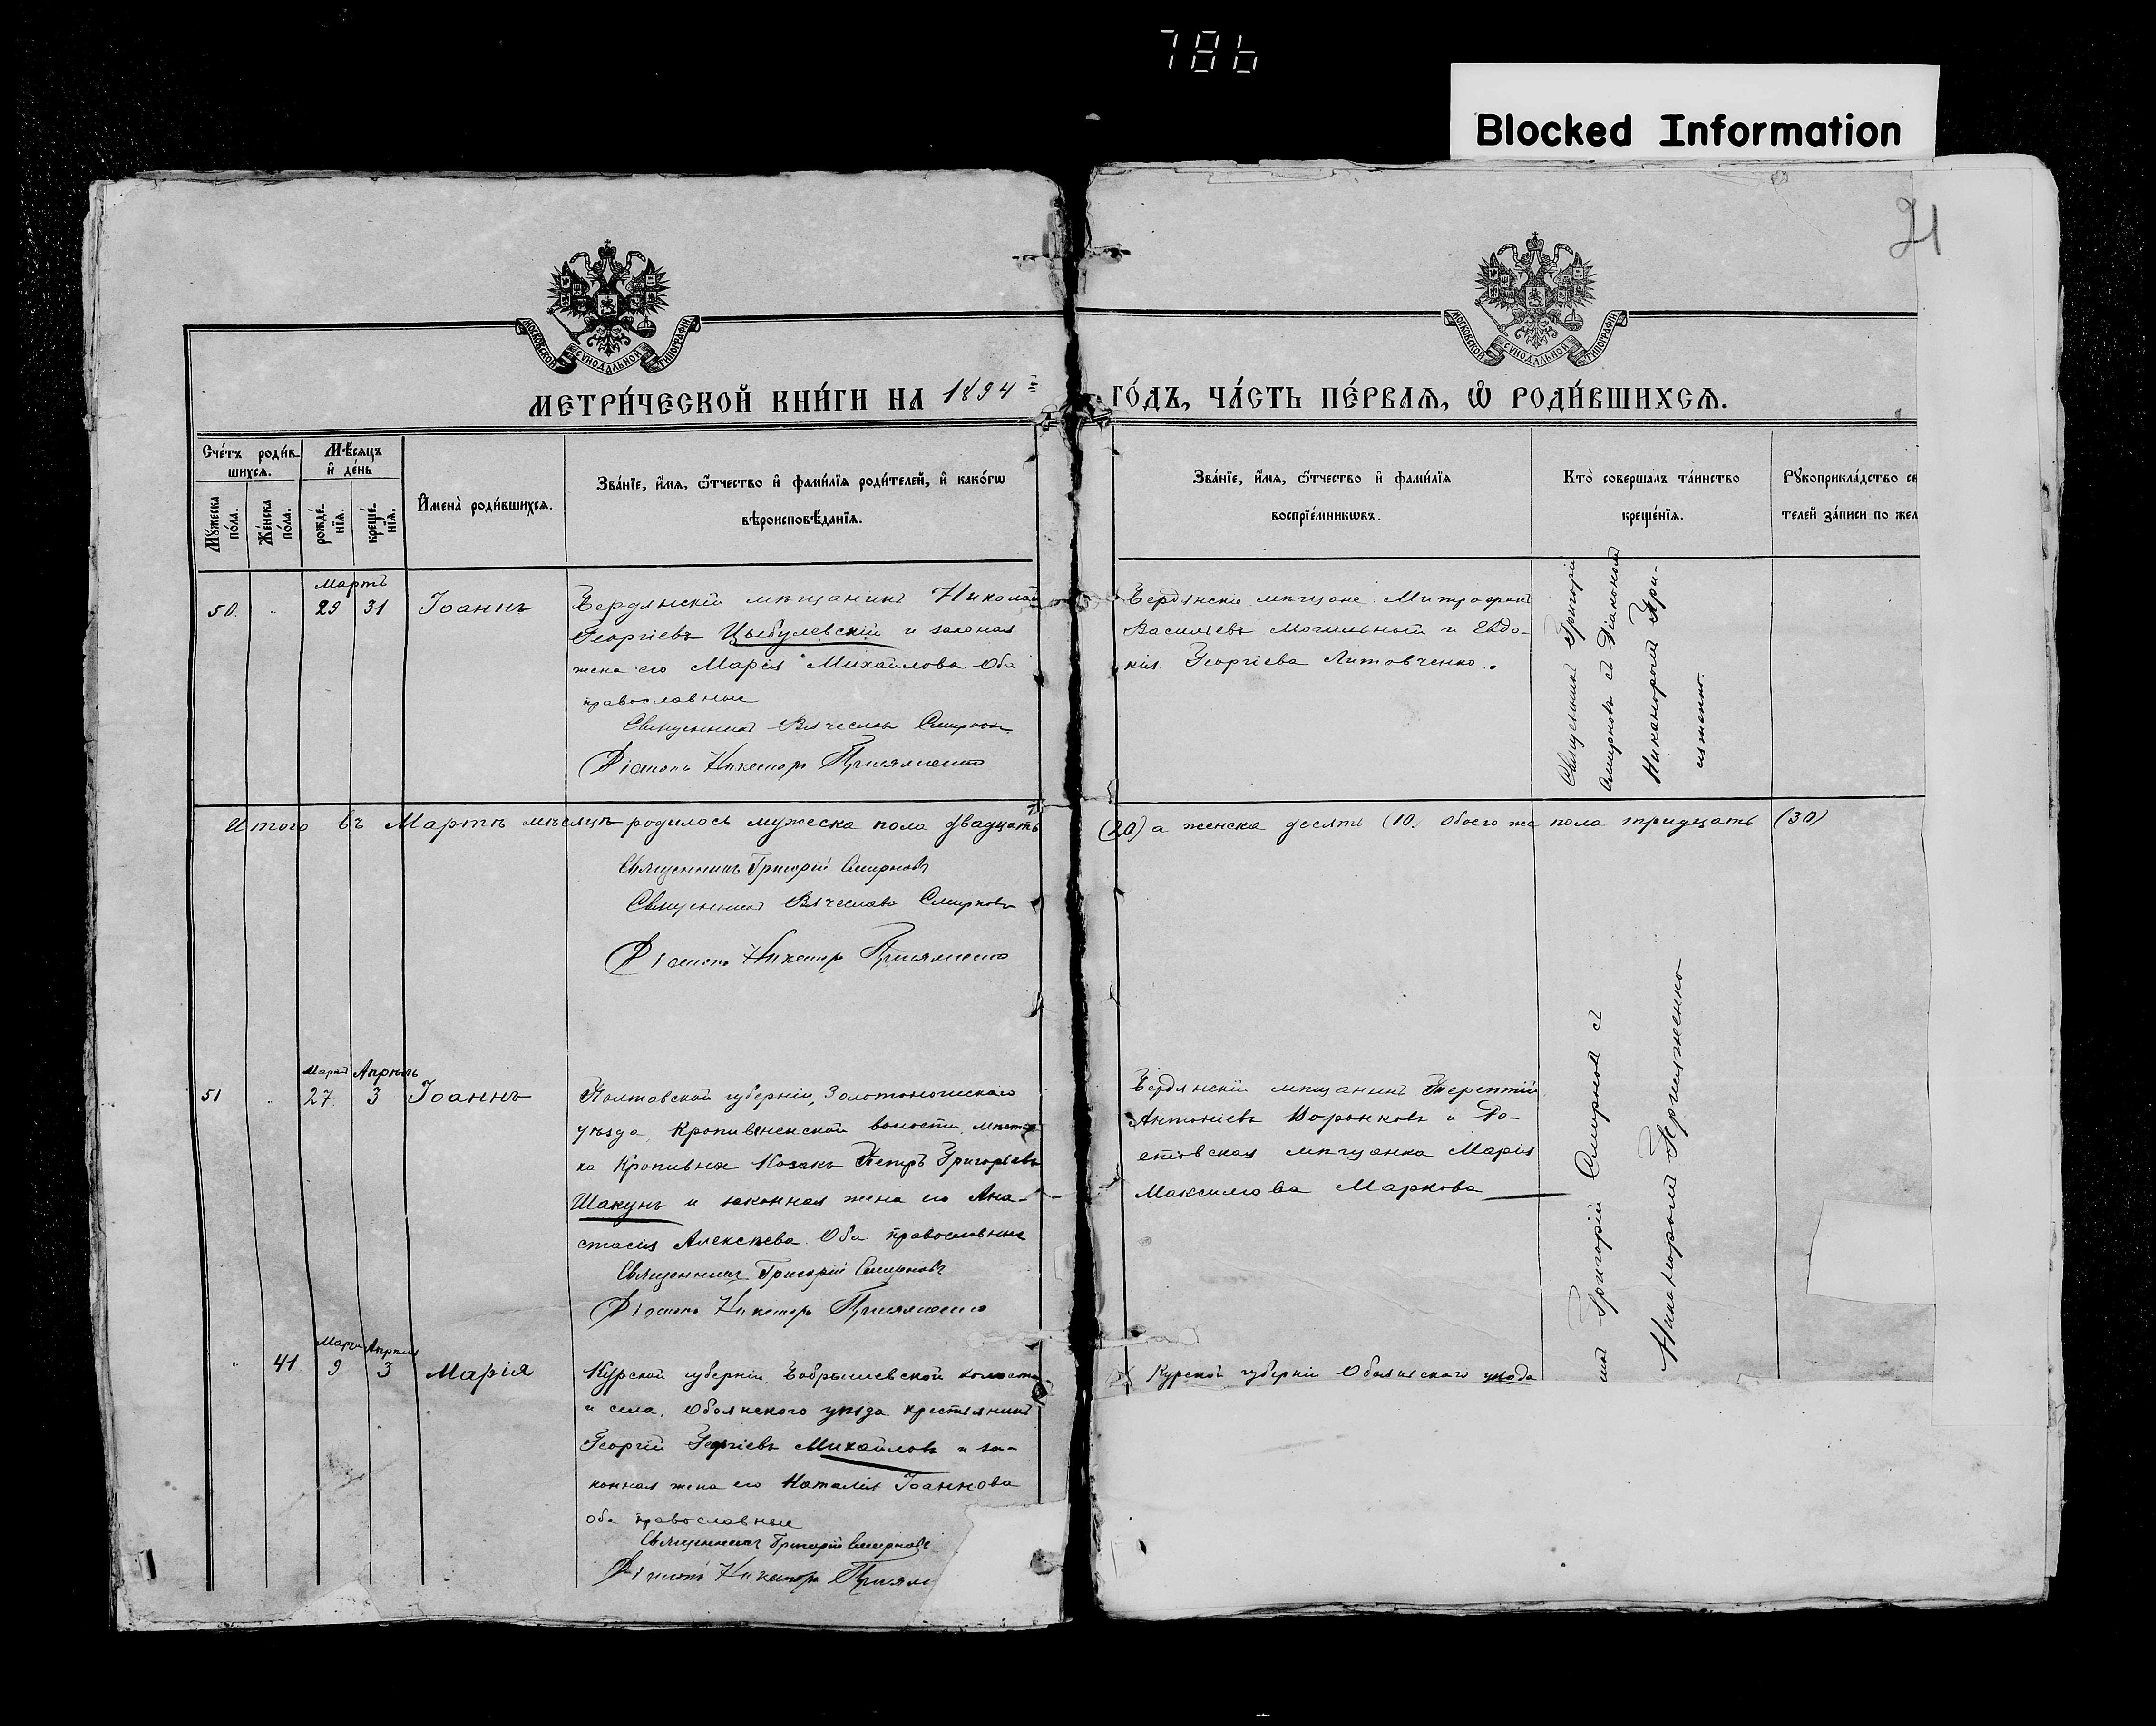 786
Blocked Information
21
МОСКОВСКОЙ СѴНОДАЛЬНОЙ ТИПОГРАФІИ
МОСКОВСКОЙ СѴНОДАЛЬНОЙ ТИПОГРАФІИ
МЕТРИ́ЧЕСКОЙ КНИ́ГИ НА 1894 ГО́ДЪ, ЧА́СТЬ ПЕ́РВАѦ, Ѽ РОДИ́ВШИХСѦ.
Сче́тъ роди́в-
шихся.
Мꙋ́жеска по́ла.
Же́нска по́ла.
Мѣ́сяцъ
и҆ де́нь
рожде́-
нїя.
креще́-
нїя.
И҆мена̀ роди́вшихся.
Зва́нїе, и҆́мя, ѻ҆́тчество и҆ фами́лїя роди́телей, и҆ како́гѡ
вѣроисповѣ́данїя.
Зва́нїе, и҆́мя, ѻ҆́тчество и҆ фами́лїя
воспрїе́мникѡвъ.
Кто̀ соверша́лъ та́инство
креще́нїя.
Рꙋкоприкла́дство св
телей за́писи по жел
Мартъ
50 " 29 31 Іоаннъ
Бердянскій мѣщанинъ Николай
Георгіевъ Цыбулевскій и законая
жена его Марія Михайлова Оба
православные
Священникъ Вячеславъ Смирновъ
Діаконъ Никаноръ Присяженко
Бердянскіе мѣщане Митрофанъ
Васильевъ Могильный и Евдо-
кія Георгіева Литовченко.
Священникъ Григорій
Смирновъ съ Діакономъ
Никаноромъ При-
сяженко.
Итого въ Мартѣ мѣсяцѣ родилось мужеска пола двадцать (20) а женска десять (10. Обоего же пола тридцать (30)
Священникъ Григорій Смирновъ
Священникъ Вячеславъ Смирновъ
Діаконъ Никаноръ Присяженко
Мартъ Апрѣль
51 " 27 3 Іоаннъ
Полтавской губерніи, Золотоношскаго
уѣзда, Кропивненской волости, мѣстеч
ка Кропивня Козакъ Петръ Григорьевъ
Шакунъ и законная жена его Ана-
стасія Алексѣева Оба православные
Священникъ Григорій Смирновъ
Діаконъ Никаноръ Присяженко
Бердянскій мѣщанинъ Терентій
Антоніевъ Воронковъ и Ро-
стовская мѣщанка Марія
Максимова Маркова
никъ Григорій Смирновъ съ
Никаноромъ Присяженко
Мартъ Апрѣль
" 41 9 3 Марія
Курской губерніи, Бобрышевской волости
и села, Обоянского уѣзда крестьянинъ
Георгій Георгіевъ Михайловъ и за-
конная жена его Наталія Іоаннова
оба православные
Священникъ Григорій Смирновъ
Діаконъ Никаноръ Присяж
Курской губерніи Обоянскаго уѣзда